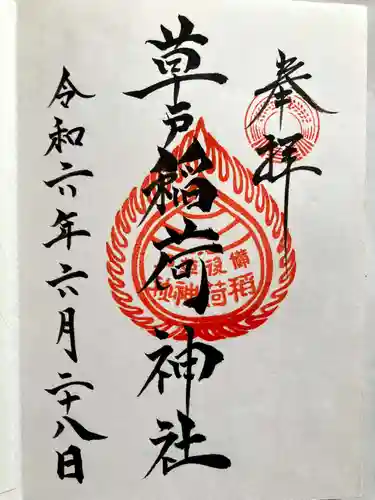 奉拝
草戸稲荷神社
令和六年六月二十八日
備後草戸
稲荷神社